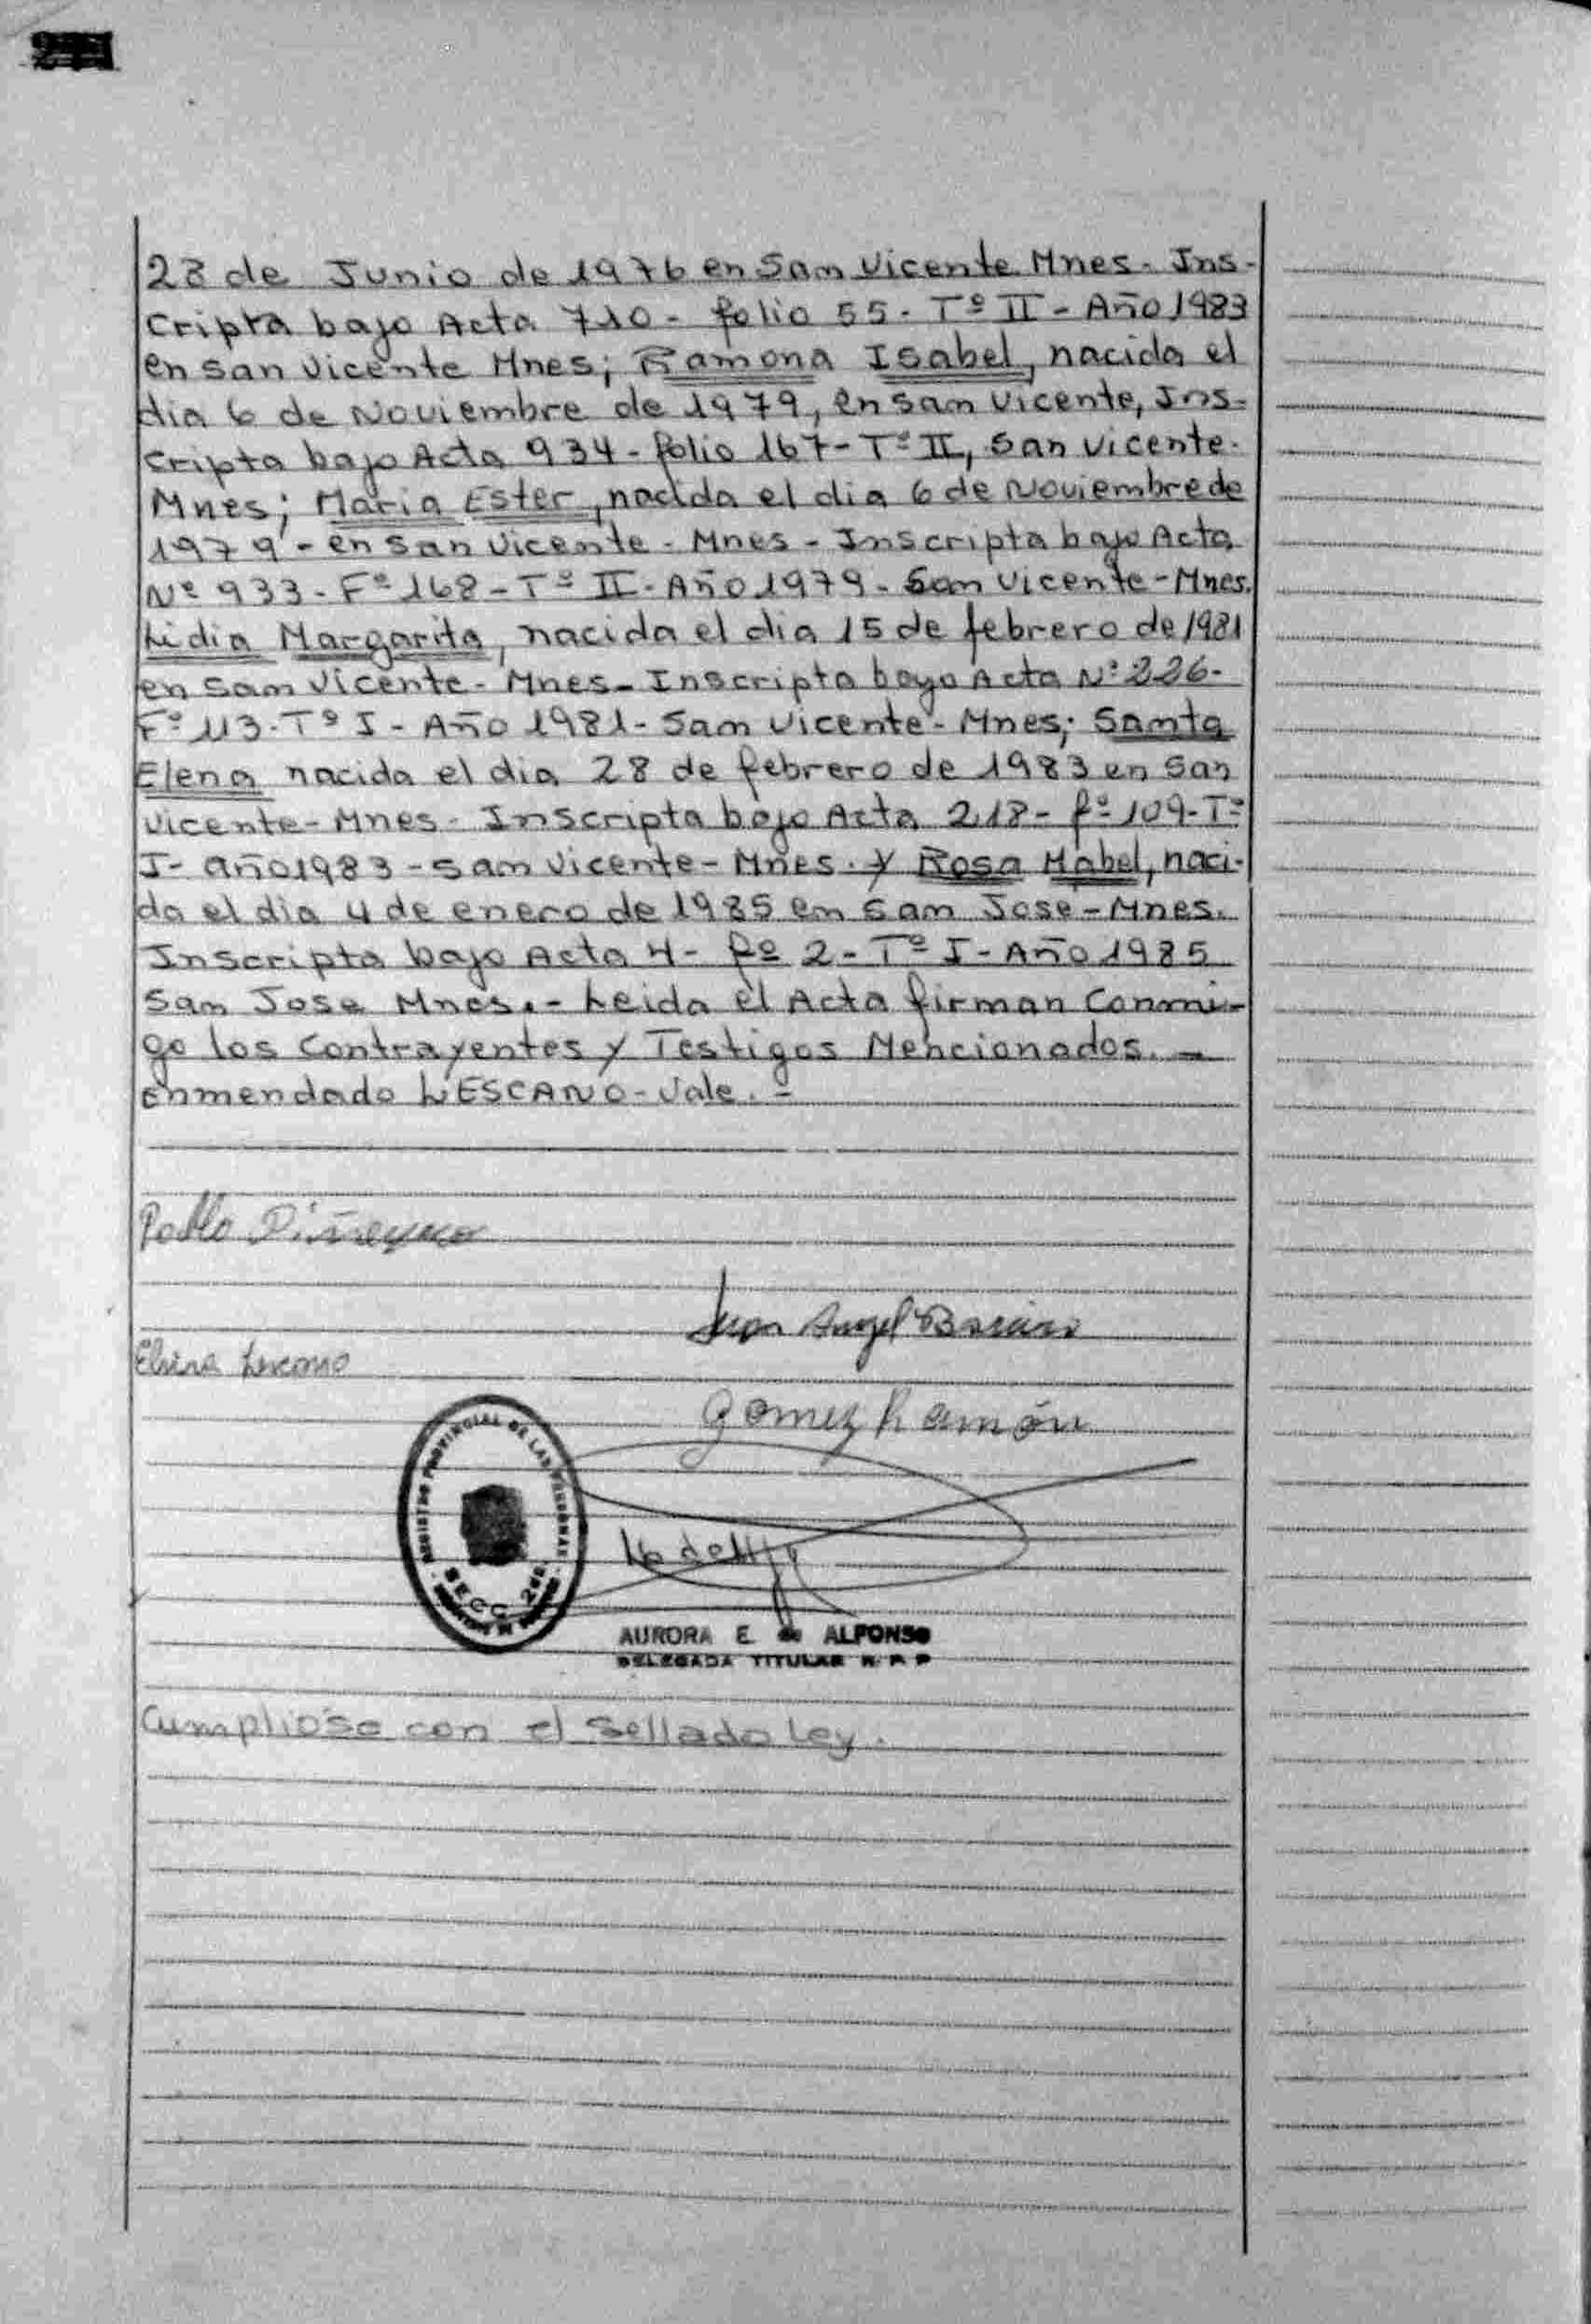 28 de Junio de 1976 en San Vicente Mnes. Ins-
cripta bajo Acta 710 - folio 55 - Tº II - Año 1983
en San Vicente Mnes; Ramona Isabel, nacida el
dia 6 de Noviembre de 1979, en San Vicente, Ins-
cripta bajo Acta 934 - folio 167 - Tº II, San Vicente.
Mnes; Maria Ester, nacida el dia 6 de Noviembre de
1979 - en San Vicente - Mnes - Inscripta bajo Acta
Nº 933 - Fº 168 - Tº II - Año 1979 - San Vicente - Mnes.
Lidia Margarita, nacida el dia 15 de febrero de 1981
en San Vicente - Mnes - Inscripta bayo Acta Nº 226 -
Fº 113 - Tº I - Año 1981 - San Vicente - Mnes; Santa
Elena nacida el dia 28 de febrero de 1983 en San
Vicente - Mnes - Inscripta bajo Acta 218 - fº 109 - Tº
I - año 1983 - San Vicente - Mnes. y Rosa Mabel, naci-
da el dia 4 de enero de 1985 en San Jose - Mnes.
Inscripta bajo Acta 4 - fº 2 - Tº I - Año 1985
San Jose Mnes. - Leida el Acta firman Conmi-
go los Contrayentes y Testigos Mencionados. -
Enmendado LESCANO - Vale. -
Pablo
Juan Angel
Elvira Lescano
Gomez Ramón
REGISTRO PROVINCIAL DE LAS PERSONAS
SECC.
AURORA E. de ALFONSO
DELEGADA TITULAR R. P. P
Cumpliose con el Sellado Ley.